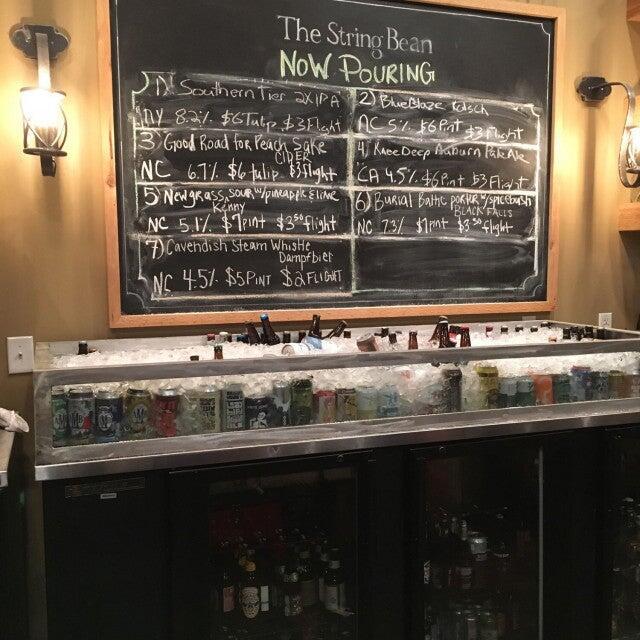 The String Bean
NOW POURING
1) Southern Tier 2XIPA
NY 8.2% $6 Tulip $3 Flight
2) Blue Blaze Kolsch
NC 5% $6 Pint $3 Flight
3) Good Road for Peach Sake
CIDER
NC 6.7% $6 tulip $3 flight
4) Knee Deep Auburn Pale Ale
CA 4.5% $6 Pint $3 Flight
5) Newgrass sour w/ pineapple & lime
Kenny
NC 5.1% $7 pint $3.50 flight
6) Burial Baltic porter w/ spicebush
BLACK FALLS
NC 7.3% $7 pint $3.50 flight
7) Cavendish Steam Whistle
Dampfbier
NC 4.5% $5 PINT $2 FLIGHT